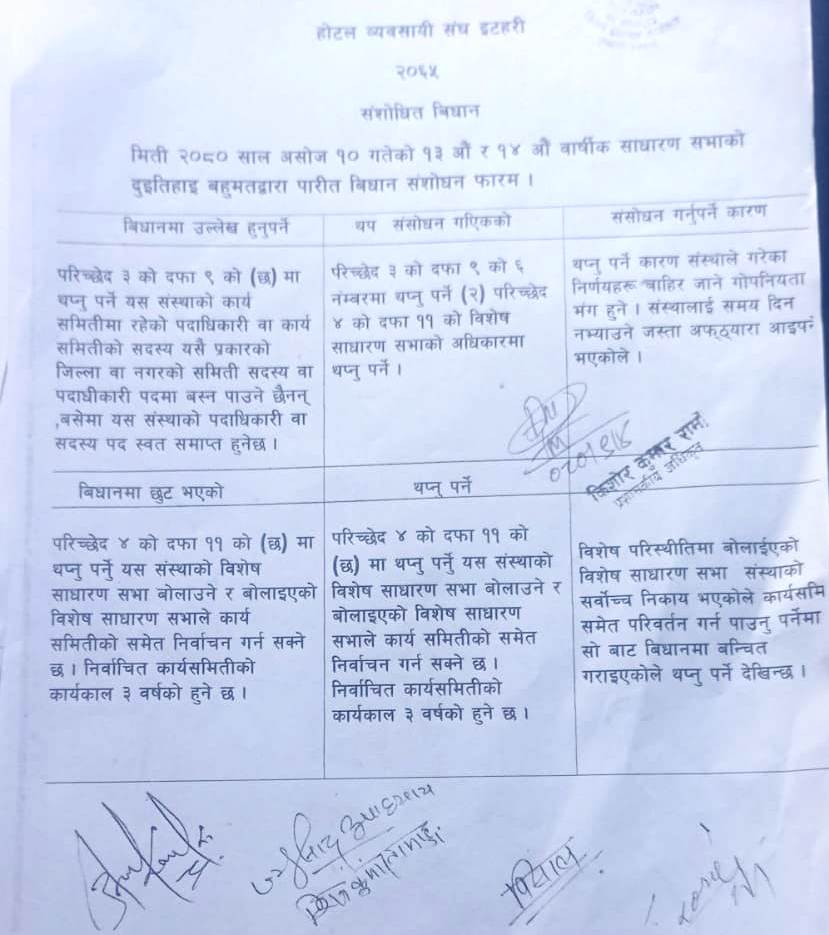 होटल व्यवसायी संघ इटहरी
२०६५
संशोधित बिधान
मिती २०८० साल असोज १० गतेको १३ औं र १४ औं वार्षीक साधारण सभाको
दुइतिहाइ बहुमतद्वारा पारीत बिधान संशोधन फारम ।
बिधानमा उल्लेख हुनुपर्ने
परिच्छेद ३ को दफा ९ को (छ) मा
थप्नु पर्ने यस संस्थाको कार्य
समितीमा रहेको पदाधिकारी वा कार्य
समितीको सदस्य यसै प्रकारको
जिल्ला वा नगरको समिती सदस्य वा
पदाधीकारी पदमा बस्न पाउने छैनन्
,बसेमा यस संस्थाको पदाधिकारी वा
सदस्य पद स्वत समाप्त हुनेछ ।
थप संसोधन गएिकको
परिच्छेद ३ को दफा ९ को ६
नंम्बरमा थप्नु पर्ने (२) परिच्छेद
४ को दफा ११ को विशेष
साधारण सभाको अधिकारमा
थप्नु पर्ने ।
संसोधन गर्नुपर्ने कारण
थप्नु पर्ने कारण संस्थाले गरेका
निर्णयहरू बाहिर जाने गोपनियता
भंग हुने । संस्थालाई समय दिन
नभ्याउने जस्ता अफ्ठ्यारा आइपर्ने
भएकोले ।
किशोर कुमार
प्रशासकीय अधिकृत
बिधानमा छुट भएको
परिच्छेद ४ को दफा ११ को (छ) मा
थप्नु पर्नु यस संस्थाको विशेष
साधारण सभा बोलाउने र बोलाइएको
विशेष साधारण सभाले कार्य
समितीको समेत निर्वाचन गर्न सक्ने
छ । निर्वाचित कार्यसमितीको
कार्यकाल ३ वर्षको हुने छ ।
थप्नु पर्ने
परिच्छेद ४ को दफा ११ को
(छ) मा थप्नु पर्नु यस संस्थाको
विशेष साधारण सभा बोलाउने र
बोलाइएको विशेष साधारण
सभाले कार्य समितीको समेत
निर्वाचन गर्न सक्ने छ ।
निर्वाचित कार्यसमितीको
कार्यकाल ३ वर्षको हुने छ ।
विशेष परिस्थीतिमा बोलाईएको
विशेष साधारण सभा संस्थाको
सर्वोच्च निकाय भएकोले कार्यसमि
समेत परिवर्तन गर्न पाउनु पर्नेमा
सो बाट बिधानमा बन्चित
गराइएकोले थप्नु पर्ने देखिन्छ ।